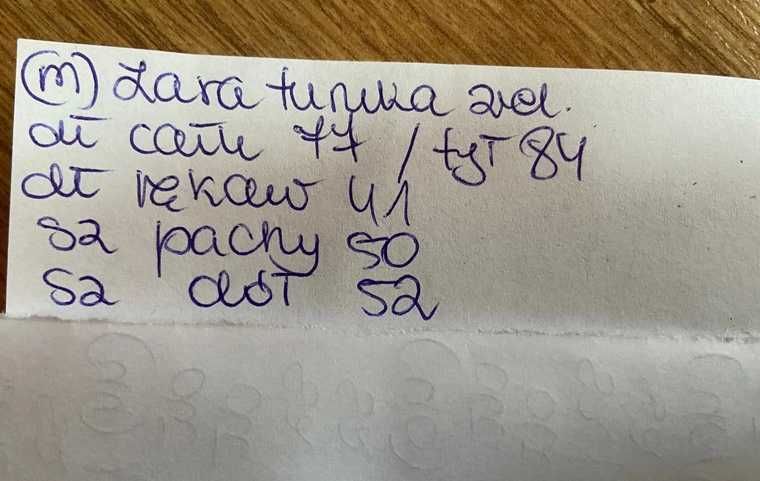 (m) Zara tunika zid.
dł całk 77 / tył 84
dł rękaw 41
sz pachy 50
sz dół 52